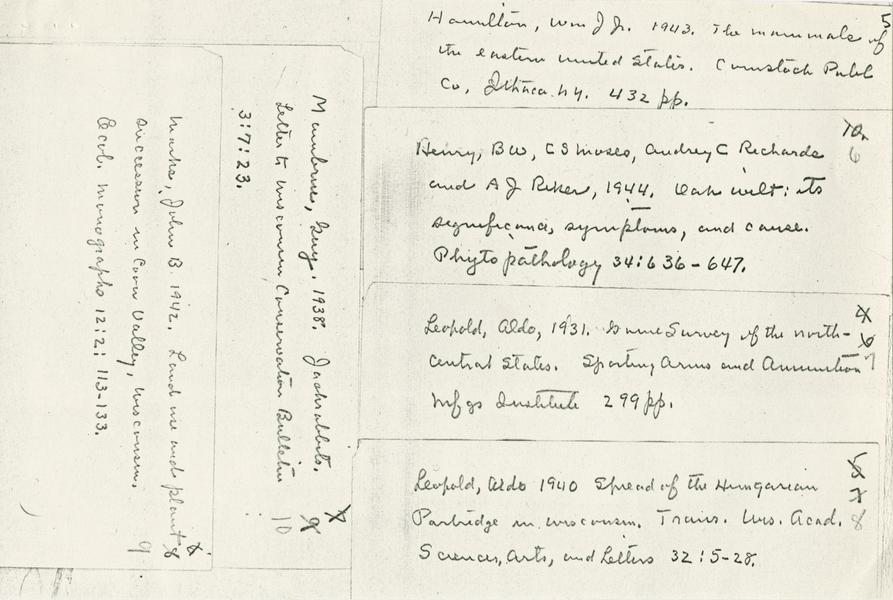 Hamilton, Wm J Jr. 1943. The mammals of
the eastern united States. Comstock Publ
Co, Ithaca. N.Y. 432 pp.
5
Henry, BW, C S Moses, Audrey C Richards
and A J Riker, 1944. Oak wilt: its
significance, symptoms, and cause.
Phytopathology 34:636-647.
6
Leopold, Aldo, 1931. Game Survey of the north-
central States. Sporting Arms and Ammunition
Mfgs Institute 299 pp.
7
Leopold, Aldo 1940 Spread of the Hungarian
Partridge in Wisconsin. Trans. Wis. Acad.
Sciences, Arts, and Letters 32:5-28.
8
Marks, John B 1942. Land use and plant
succession in Coon Valley, Wisconsin.
Ecol. Monographs 12:2: 113-133.
9
Guy. 1938. Jackrabbits.
Letter to Wisconsin Conservation Bulletin
3:7:23.
10